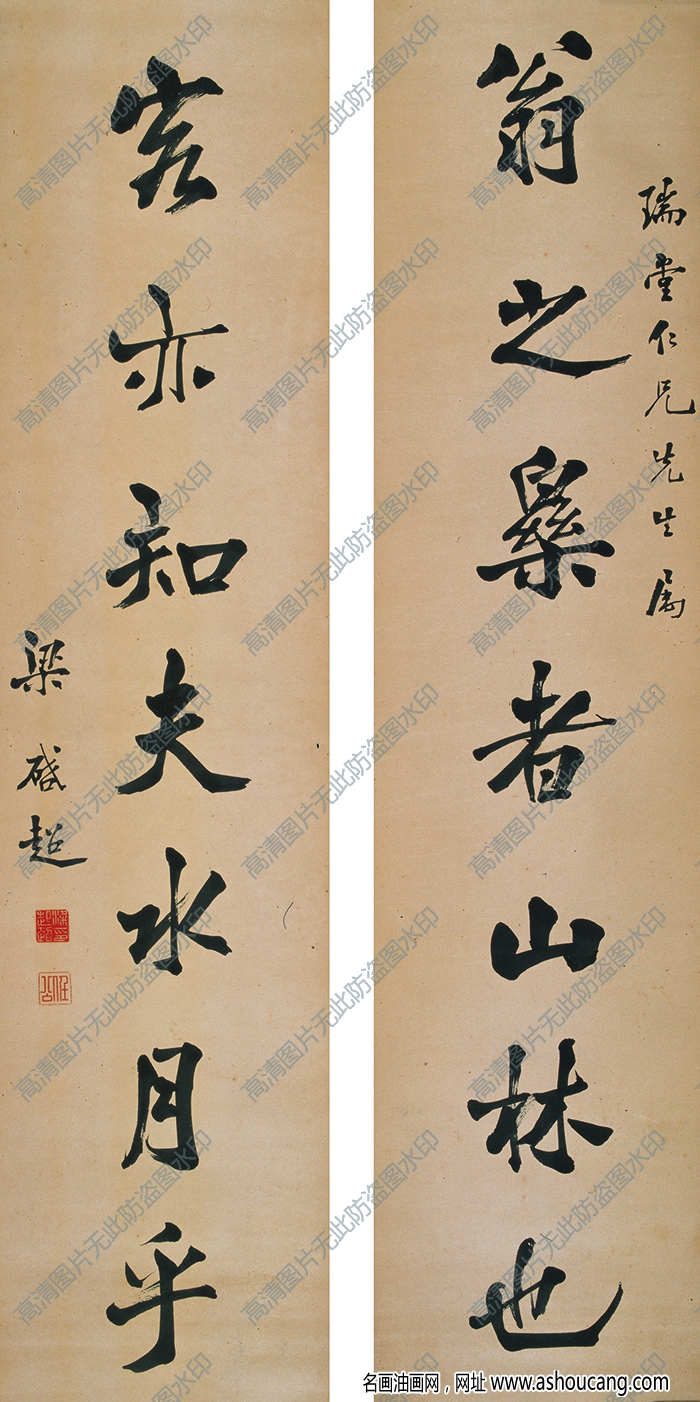 瑞堂仁兄先生属
翁之樂者山林也
客亦知夫水月乎
梁啟超
任公
高清图片无此防盗图水印
名画油画网，网址 www.ashoucang.com